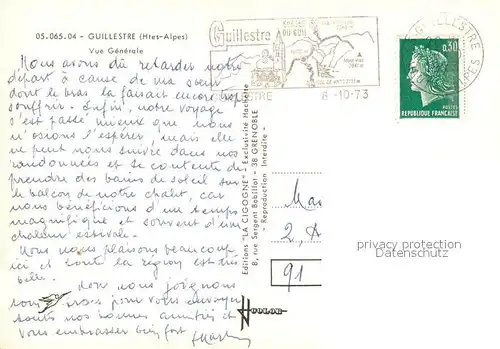 05.065.04 - GUILLESTRE (Htes-Alpes)
Vue Générale
Nous avons dû retarder notre
départ à cause de ma sœur
dont le bras la faisait encore trop
souffrir. Enfin, notre voyage
s'est passé mieux que nous
n'osions l'espérer, mais elle
ne peut nous suivre dans nos
randonnées et se contente de
prendre des bains de soleil sur
le balcon de notre chalet, car
nous bénéficions d'un temps
magnifique et souvent d'une
chaleur estivale.
Nous nous plaisons beaucoup
ici et toute la région est très
belle.
nous joignons
pour vous envoyer
toutes nos bonnes amitiés et
vous embrasser bien fort
Editions "LA CIGOGNE" - Exclusivité Hachette
8, rue Sergent Bobillot - 38 GRENOBLE
- Reproduction Interdite -
Guillestre
DU GUIL
8-10-73
GUILLESTRE
0,30
POSTES
REPUBLIQUE FRANÇAISE
2, A
91
privacy protection
Datenschutz